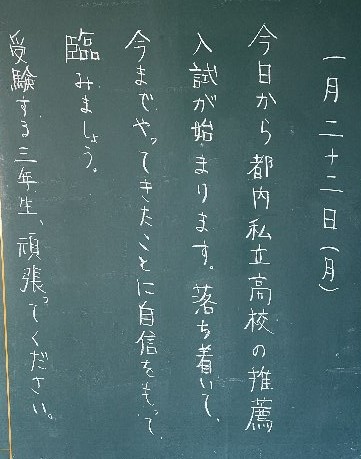 一月二十二日(月)
今日から都内私立高校の推薦
入試が始まります。落ち着いて、
今までやってきたことに自信をもって、
臨みましょう。
受験する三年生、頑張ってください。